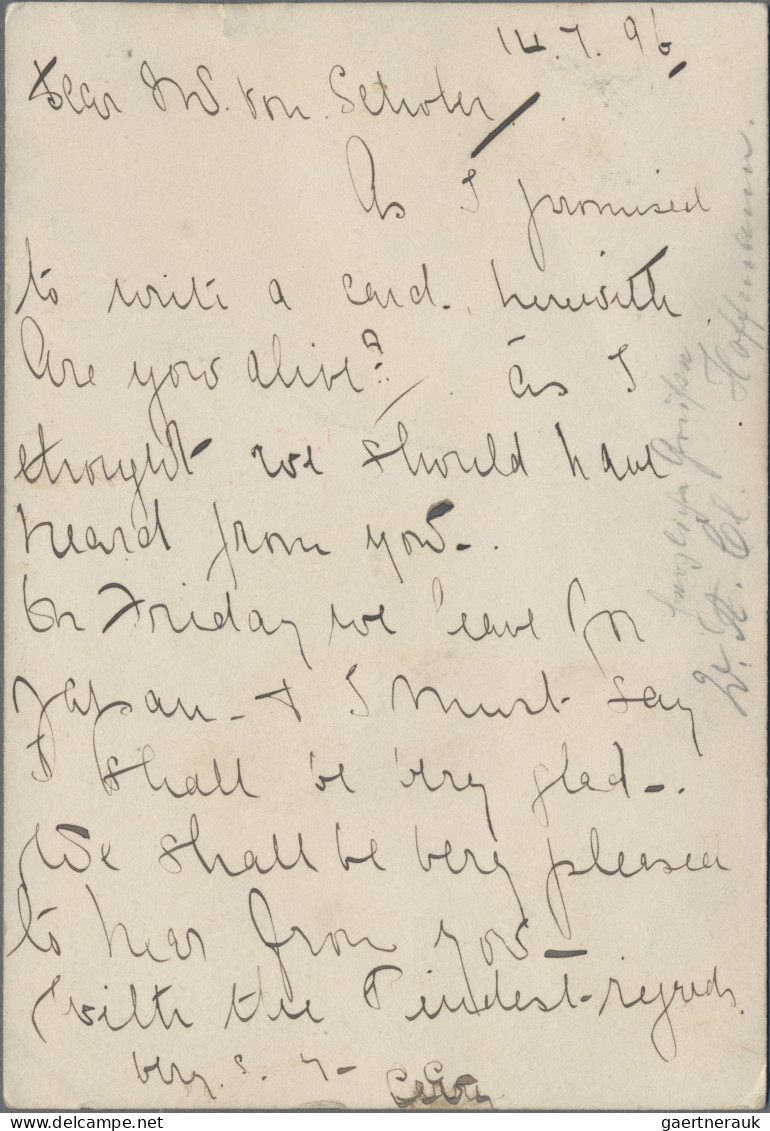 14.7.96
Dear Mr. von
As I promised
to write a card. herewith.
Are you alive? as I
thought we should have
heard from you-.
On Friday we leave for
Japan - & I must say
I shall be very glad-.
We shall be very pleased
to hear from you-
With the kindest regards.
very s. y-
herzliche Grüße
Hoffmann.
gaertnerauk